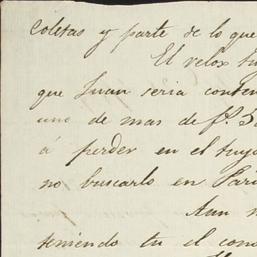 coletas y parte de lo que
El velox
que Juan seria conten
uno de mas de fs. 5
á perder en el tuyo
no buscarlo en Pari
Aun
teniendo tu el cono